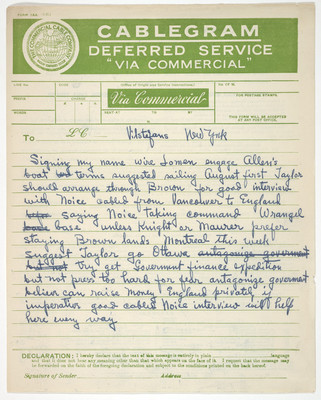 CABLEGRAM
DEFERRED SERVICE
"VIA COMMERCIAL"
Via Commercial
FOR POSTAGE STAMPS.
THIS FORM WILL BE ACCEPTED
AT ANY POST OFFICE.
To LC Vilstefans New York
Signing my name wire Lomen engage Allen's
boat terms suggested sailing August first Taylor
should arrange through Brown for good interview
with Noice cabled from Vancouver to England
saying Noice taking command Wrangel
base unless Knight or Maurer prefer
staying Brown lands Montreal this week
suggest Taylor go Ottawa antagonize government
but not try get Government finance expedition
but not press too hard for fear antagonize government
believe can raise money England privately if
imperative good cabled Noice interview will help
here every way
DECLARATION: I hereby declare that the text of this message is entirely in plain language
and that it does not bear any meaning other than that which appears on the face of it. I request that the message may
be forwarded on the faith of the foregoing declaration and subject to the conditions printed on the back hereof.
Signature of Sender Address